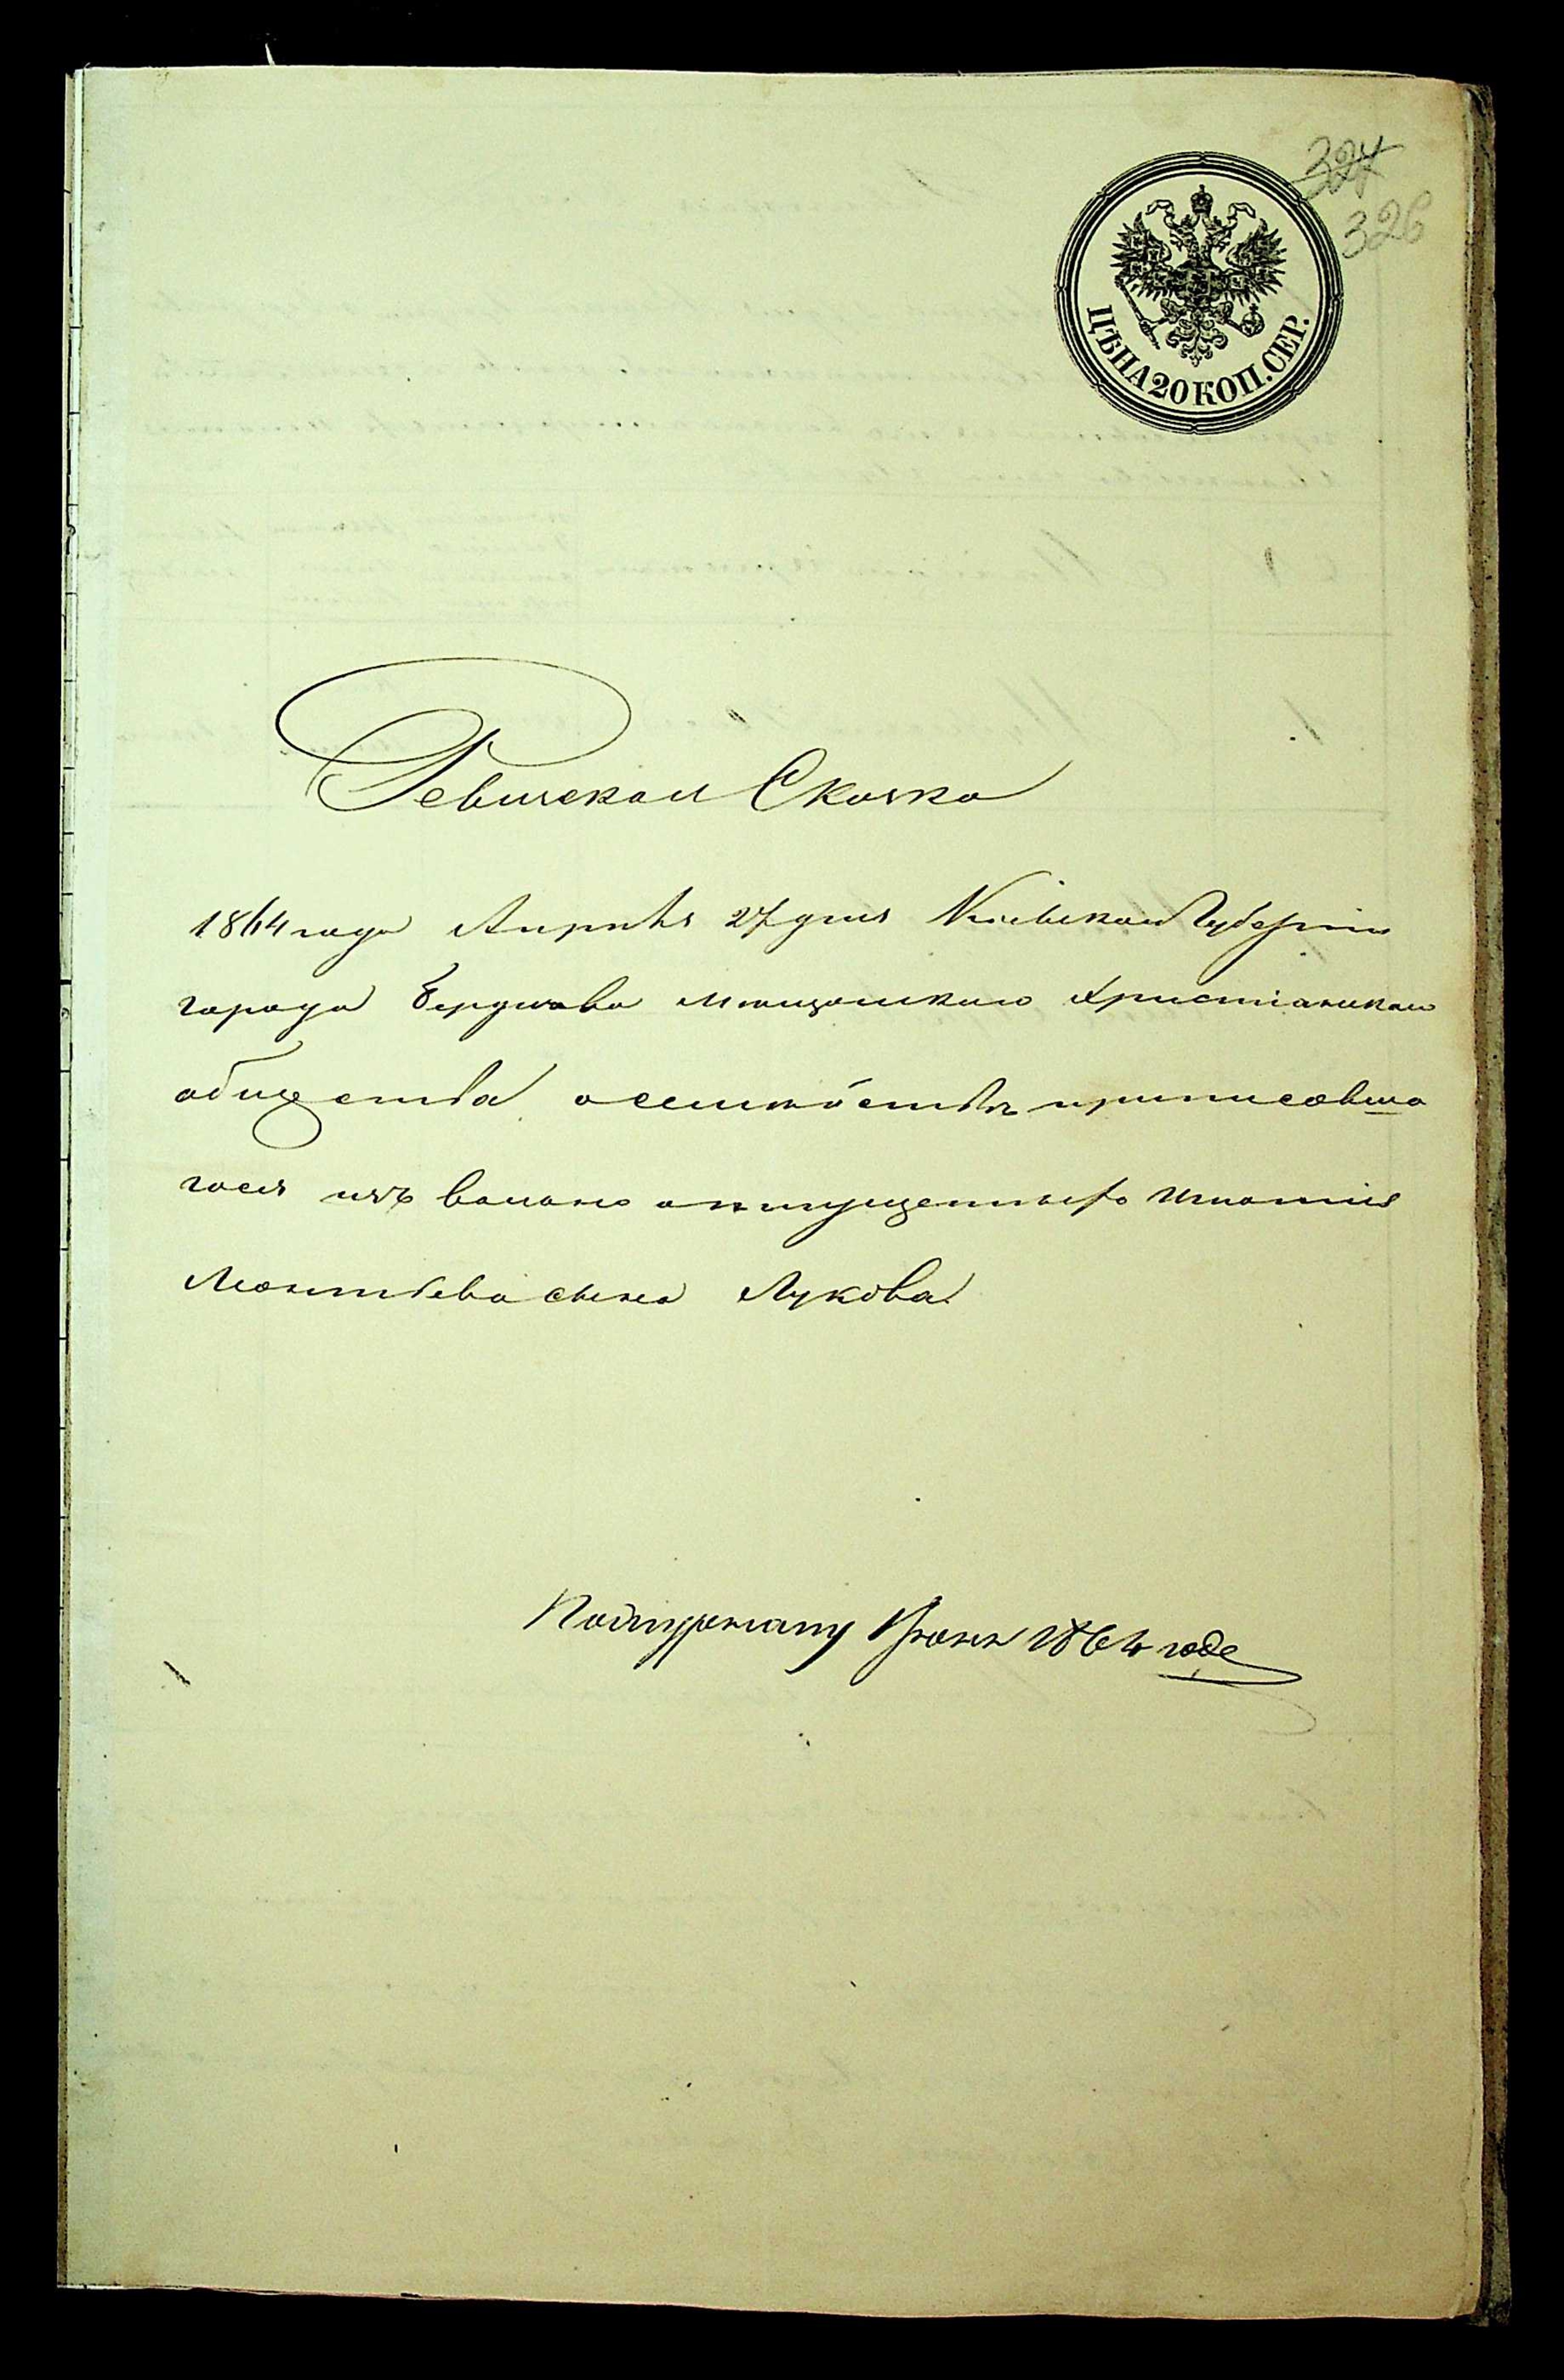 327
326
ЦѢНА 20 КОП. СЕР.
Ревизская Сказка
1864 года Апрѣля 27 дня Кіевской Губерніи
города Бердичева мѣщанскаго Христіанскаго
общества о семействѣ приписавша
гося изъ вольно отпущенныхъ Игнатія
Леонтьева сына Лукова
1864 годе